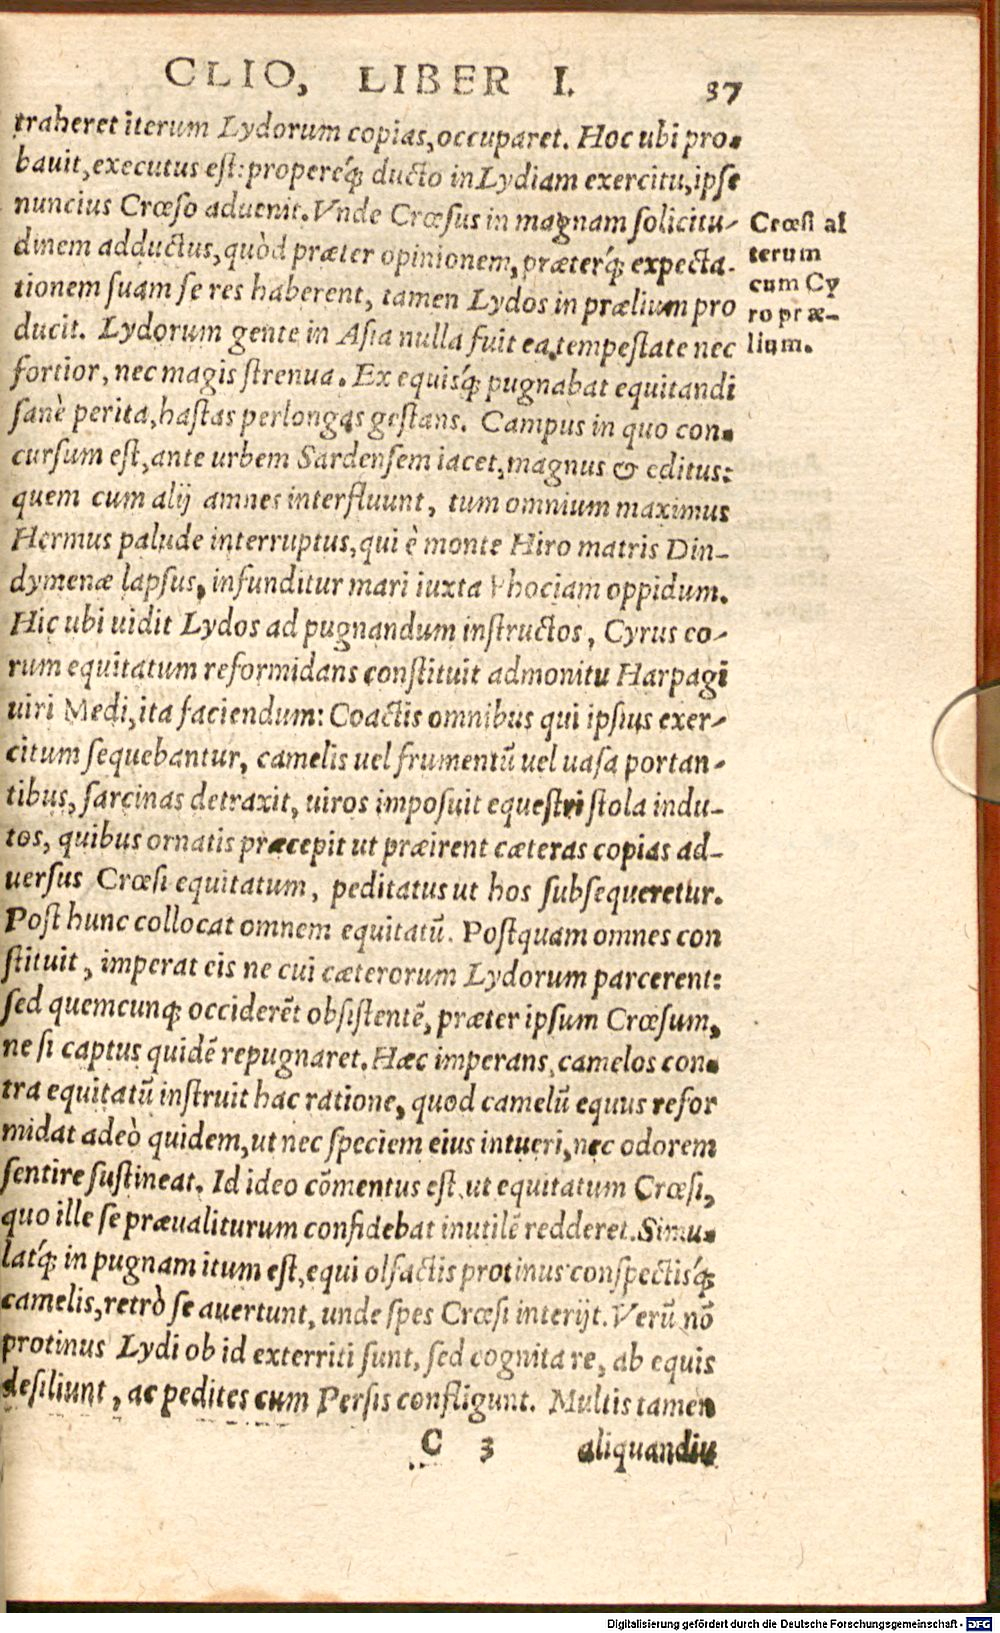 CLIO, LIBER I. 37
traheret iterum Lydorum copias, occuparet. Hoc ubi pro-
bauit, executus est: properéq́; ducto in Lydiam exercitu, ipse
nuncius Crœso aduenit. Vnde Crœsus in magnam solicitu-
dinem adductus, quòd præter opinionem, præterq́; expecta-
tionem suam se res haberent, tamen Lydos in prælium pro
ducit. Lydorum gente in Asia nulla fuit ea tempestate nec
fortior, nec magis strenua. Ex equisq́; pugnabat equitandi
sanè perita, hastas perlongas gestans. Campus in quo con-
cursum est, ante urbem Sardensem iacet, magnus & editus:
quem cum alij amnes interfluunt, tum omnium maximus
Hermus palude interruptus, qui è monte Hiro matris Din-
dymenæ lapsus, infunditur mari iuxta Phociam oppidum.
Hic ubi uidit Lydos ad pugnandum instructos, Cyrus eo-
rum equitatum reformidans constituit admonitu Harpagi
uiri Medi, ita faciendum: Coactis omnibus qui ipsius exer-
citum sequebantur, camelis uel frumentū uel uasa portan-
tibus, sarcinas detraxit, uiros imposuit equestri stola indu-
tos, quibus ornatis præcepit ut præirent cæteras copias ad-
uersus Crœsi equitatum, peditatus ut hos subsequeretur.
Post hunc collocat omnem equitatū. Postquam omnes con
stituit, imperat eis ne cui cæterorum Lydorum parcerent:
sed quemcunq; occiderēt obsistentē, præter ipsum Crœsum,
ne si captus quidē repugnaret. Hæc imperans, camelos con-
tra equitatū instruit hac ratione, quod camelū equus refor
midat adeò quidem, ut nec speciem eius intueri, nec odorem
sentire sustineat. Id ideo cōmentus est ut equitatum Crœsi,
quo ille se præualiturum confidebat inutilē redderet. Simu-
latq́; in pugnam itum est, equi olfactis protinus conspectisq́;
camelis, retrò se auertunt, unde spes Crœsi interijt. Verū nō
protinus Lydi ob id exterriti sunt, sed cognita re, ab equis
desiliunt, ac pedites cum Persis confligunt. Multis tamen
C 3 aliquandiu
Crœsi al
terum
cum Cy
ro præ-
lium.
Digitalisierung gefördert durch die Deutsche Forschungsgemeinschaft - DFG